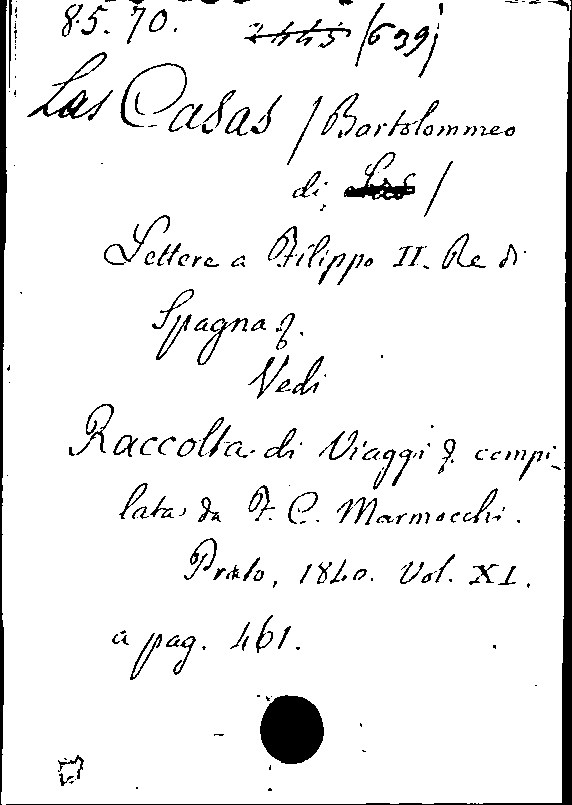 8.5.70. 2445 (639)
Las Casas / Bartolommeo
di /
Lettere a Filippo II. Re di
Spagna &.
Vedi
Raccolta di Viaggi &. compi-
lata da F. C. Marmocchi.
Prato, 1840. Vol. XI.
a pag. 461.